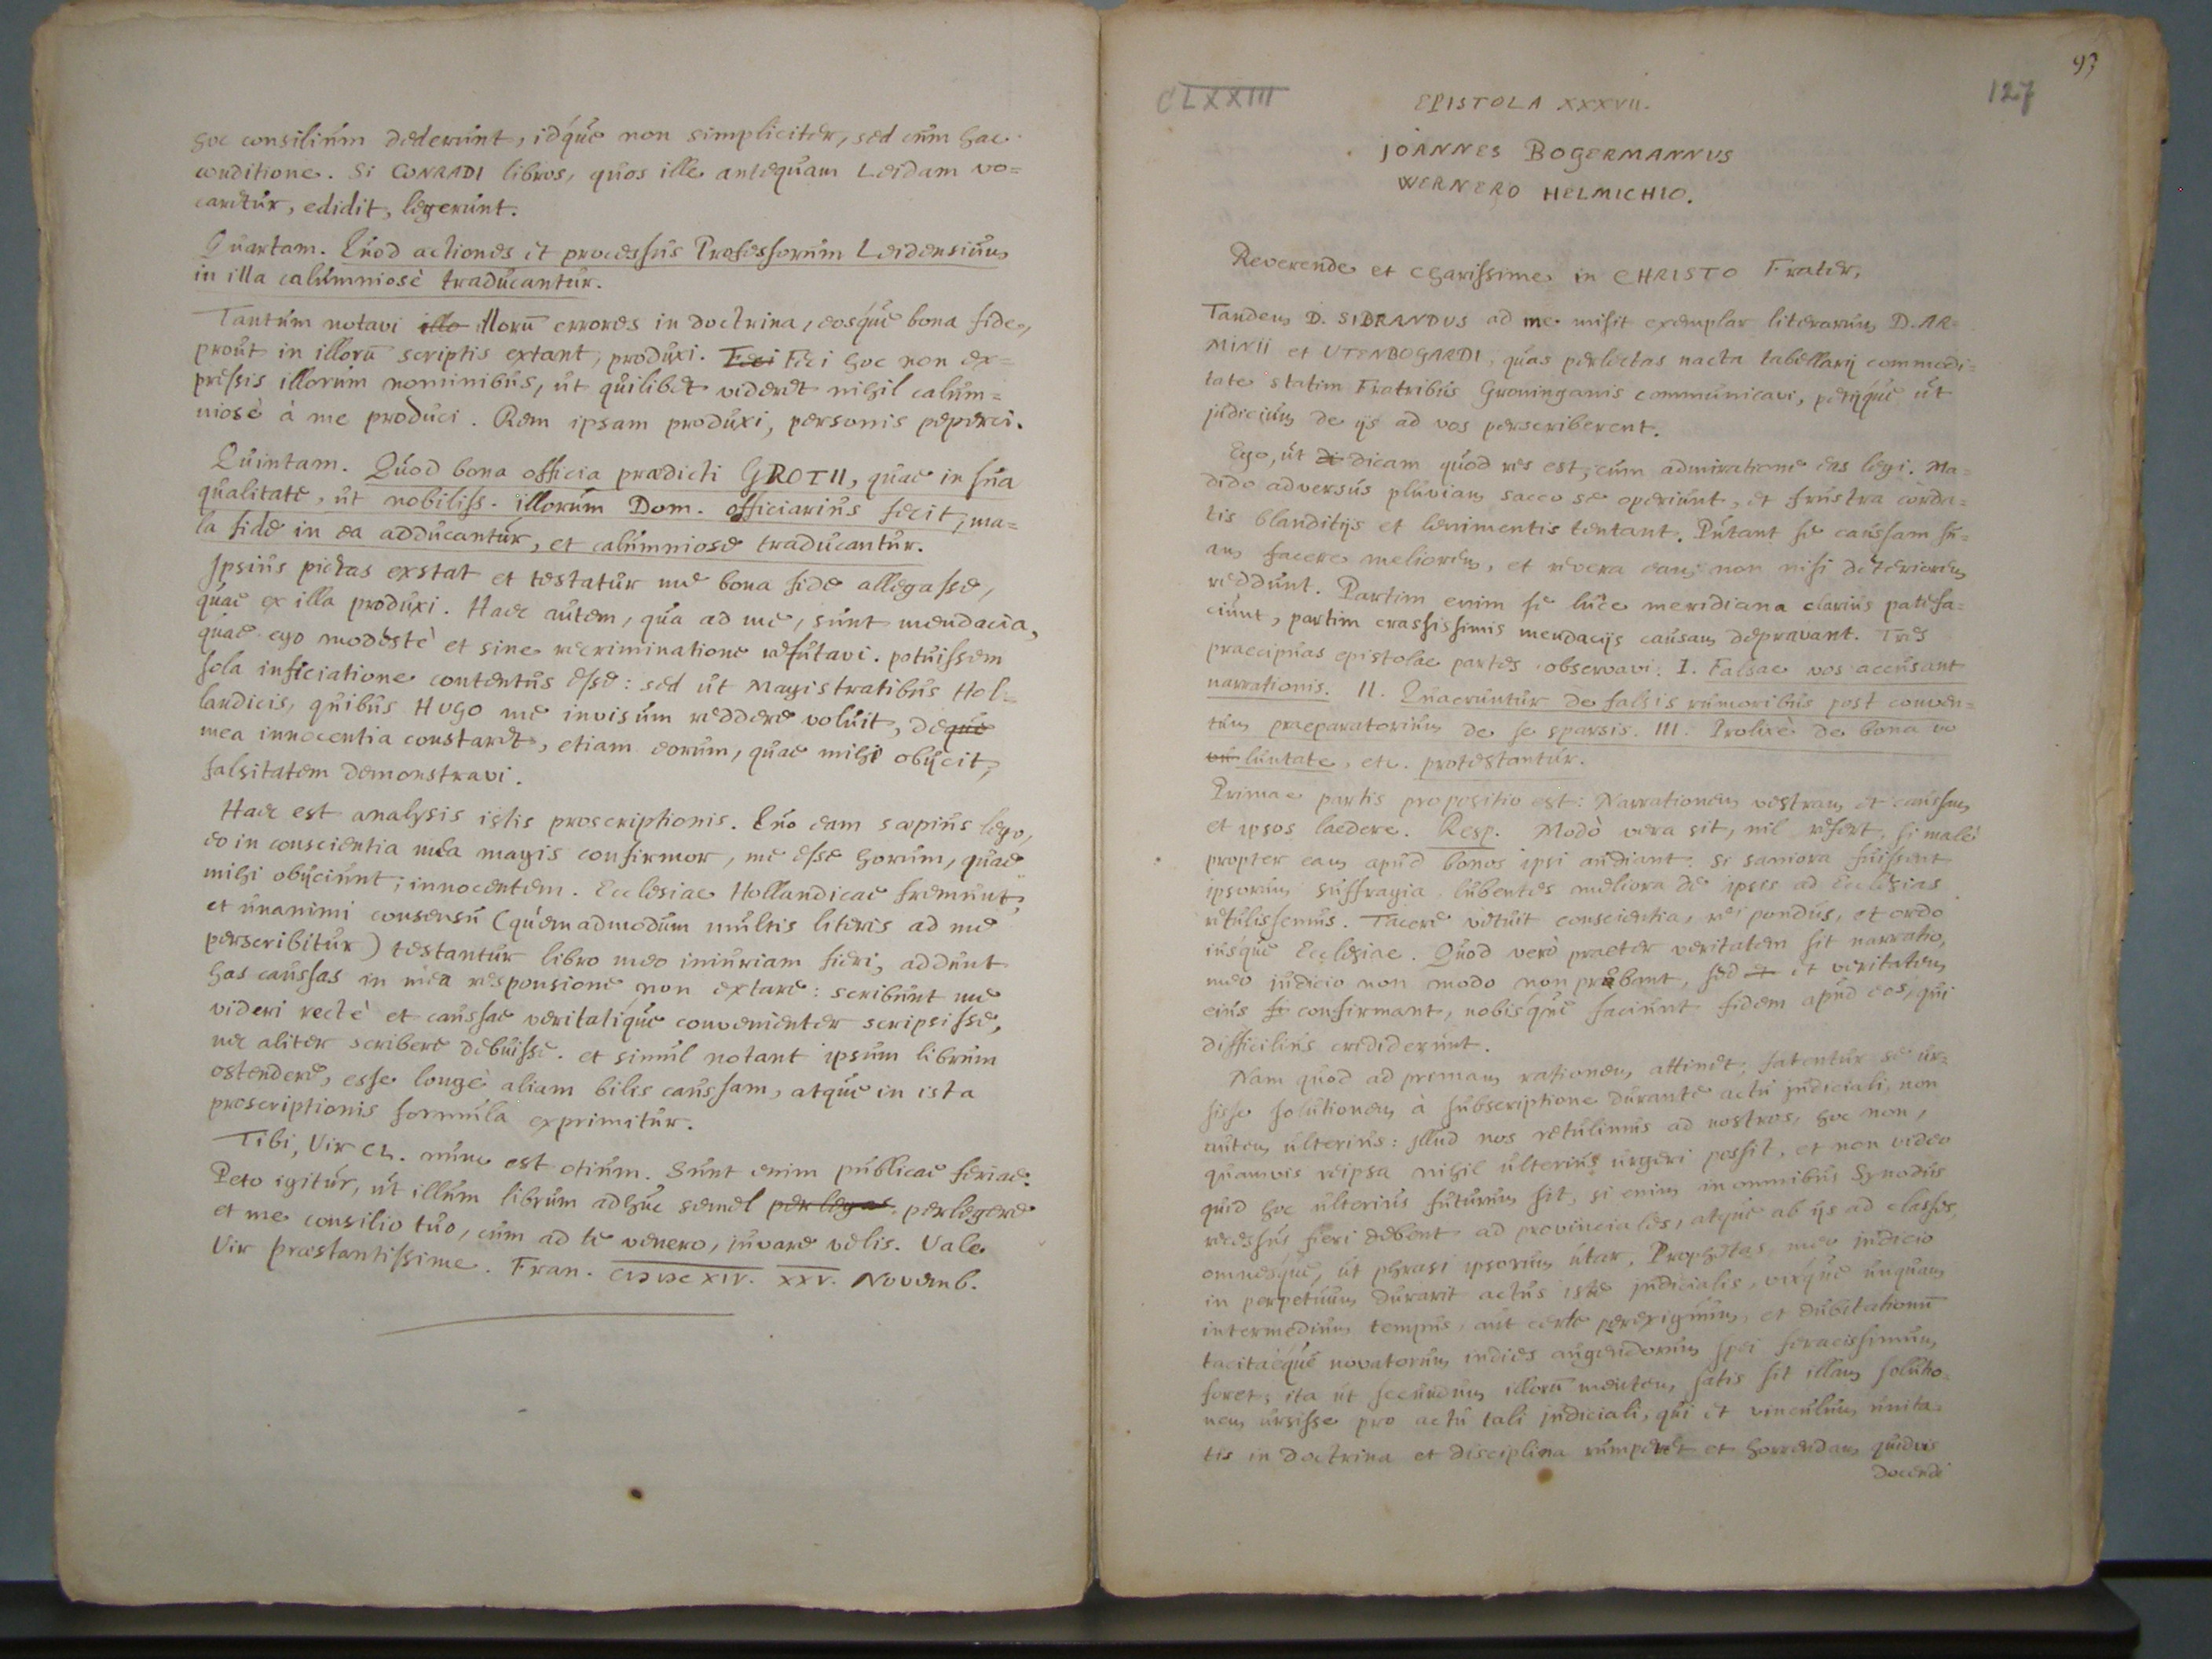 hoc consilium dederunt, idque non simpliciter, sed cum hac
conditione. Si CONRADI libros, quos ille antequam Leidam vo=
caretur, edidit, legerunt.
Quartam. Quod actiones et processus Professorum Leidensium
in illa calumniosè traducantur.
Tantum notavi illo illorū errores in doctrina, eosque bona fide,
prout in illorū scriptis extant, produxi. Feci Feci hoc non ex=
pressis illorum nominibus, ut quilibet videret nihil calum=
niosè à me produci. Rem ipsam produxi, personis peperci.
Quintam. Quod bona officia praedicti GROTII, quae in sua
qualitate, ut nobiliss. illorum Dom. officiarius fecit, ma=
la fide in ea adducantur, et calumniose traducantur.
Ipsius pietas exstat et testatur me bona fide allegasse,
quae ex illa produxi. Haec autem, qua ad me, sunt mendacia,
quae ego modestè et sine recriminatione refutavi. potuissem
sola inficiatione contentus esse: sed ut Magistratibus Hol=
landicis, quibus HUGO me invisum reddere voluit, deque
mea innocentia constaret, etiam eorum, quae mihi obijcit,
falsitatem demonstravi.
Haec est analysis istis proscriptionis. Quo eam saepius lego,
eo in conscientia mea magis confirmor, me esse horum, quae
mihi obijciunt, innocentem. Ecclesiae Hollandicae fremunt,
et unanimi consensu (quemadmodum multis literis ad me
perscribitur) testantur libro meo iniuriam fieri, addunt
has caussas in mea responsione non extare: scribunt me
videri rectè et caussae veritatique convenienter scripsisse,
nec aliter scribere debuisse. et simul notant ipsum librum
ostendere, esse longè aliam bilis caussam, atque in ista
proscriptionis formula exprimitur.
Tibi, Vir Cl. nunc est otium. Sunt enim publicae feriae.
Peto igitur, ut illum librum adhuc semel perlegas perlegere
et me consilio tuo, cum ad te venero, juvare velis. Vale
Vir praestantissime. Fran. CIↃIↃC XIV. XXV. Novemb.
93
CLXXIII
127
EPISTOLA XXXVII.
JOANNES BOGERMANNUS
WERNERO HELMICHIO.
Reverende et Charissime in CHRISTO Frater,
Tandem D. SIBRANDUS ad me misit exemplar literarum D. AR=
MINII et UTENBOGARDI, quas perlectas nacta tabellarij commodi=
tate statim Fratribus Groninganis communicavi, petijque ut
judicium de ijs ad vos perscriberent.
Ego, ut di dicam quod res est, cum admiratione eas legi. Ma=
dido adversus pluviam sacco se operiunt, et frustra corda=
tis blanditijs et lenimentis tentant. Putant se caussam su=
am facere meliorem, et revera eam non nisi deteriorem
reddunt. Partim enim se luce meridiana clarius patefa=
ciunt, partim crassissimis mendacijs causam depravant. Tres
praecipuas epistolae partes observavi. I. Falsae vos accusant
narrationis. II. Quaeruntur de falsis rumoribus post conven=
tum praeparatorium de se sparsis. III. Prolixè de bona vo
vu luntate, etc. protestantur.
Primae partis propositio est: Narrationem vestram et caussam
et ipsos laedere. Resp. Modò vera sit, nil refert, si malè
propter eam apud bonos ipsi audiant. Si saniora fuissent
ipsorum suffragia, lubentes meliora de ipsis ad Ecclesias
retulissemus. Tacere vetuit conscientia, rei pondus, et ordo
iusque Ecclesiae. Quod verò praeter veritatem sit narratio,
meo judicio non modo non probant, sed et et veritatem
eius fi confirmant, nobisque faciunt fidem apud eos, qui
difficilius crediderunt.
Nam quod ad primam rationem attinet, fatentur se ur=
sisse solutionem à subscriptione durante actu judiciali, non
autem ulterius: illud nos retulimus ad nostros, hoc non,
quamvis reipsa nihil ulterius urgeri possit, et non video
quid hoc ulterius futurum sit, si enim in omnibus Synodis
recessus fieri debent ad provinciales, atque ab ijs ad classes,
omnesque, ut phrasi ipsorum utar, Prophetas, meo judicio
in perpetuum durarit actus iste judicialis, vixque unquam
intermedium tempus, aut certe perexiguum, et dubitationū
tacitaeque novatorum indies augendorum spei feracissimum
foret; ita ut secundum illorū mentem, satis sit illam solutio=
nem ursisse pro actu tali judiciali, qui et vinculum unita=
tis in doctrina et disciplina rumperet et horrendam quidvis
docendi